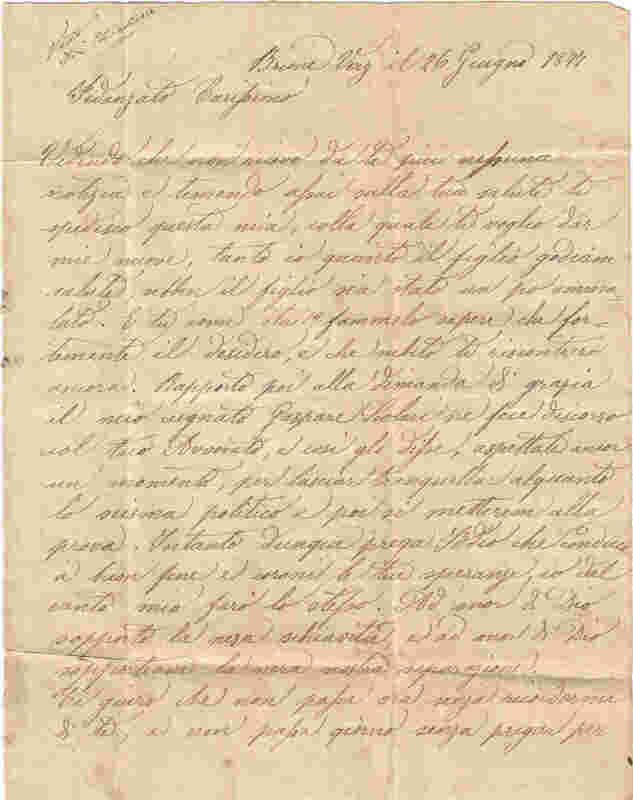 Brione Verz. il 26 Giugno 1894
Fidanzato Carissimo
Vedendo che non ricevo da te più nessuna
notizia e temendo assai sulla tua salute ti
spedisco questa mia, colla quale ti voglio dar
mie nuove, tanto io quanto il figlio godiam
salute ebben il figlio sia stato un po amma-
lato. E tu come stai fammelo sapere che for-
temente il desidero, e che subito ti riscontrerò
ancora. Rapporto poi alla dimanda di grazia
il mio segnato Gaspare Scolari ne fece discorso
col tuo Avvocato, e così gli disse, aspettate ancor
un momento, per lasciar tranquillar alquanto
lo sisma politico e poi si metterem alla
prova. Intanto dunque prega Iddio che conduca
a buon fine e coroni le tue speranze, io dal
canto mio farò lo stesso. Ad onor di Dio
sopporto la nera schiavitù, ed ad onor di Dio
sopportiamo la nera nostra separazione.
Ti giuro che non passa ora senza ricordarmi
di te, e non passa giorno senza pregar per